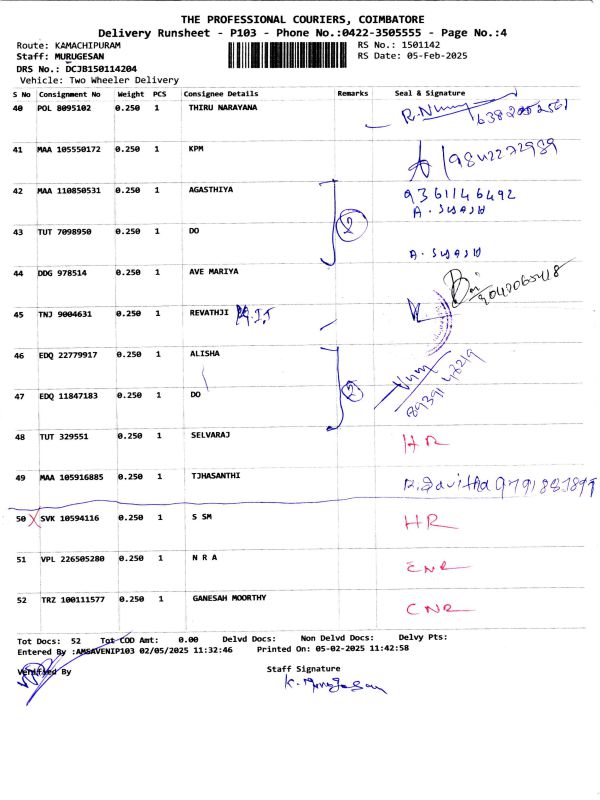 THE PROFESSIONAL COURIERS, COIMBATORE
Delivery Runsheet - P103 - Phone No.:0422-3505555 - Page No.:4
Route: KAMACHIPURAM RS No.: 1501142
Staff: MURUGESAN RS Date: 05-Feb-2025
DRS No.: DCJB150114204
Vehicle: Two Wheeler Delivery
S No Consignment No Weight PCS Consignee Details Remarks Seal & Signature
40 POL 8095102 0.250 1 THIRU NARAYANA
41 MAA 105550172 0.250 1 KPM 9842272989
42 MAA 110850531 0.250 1 AGASTHIYA 9361146492
2
43 TUT 7098950 0.250 1 DO
44 DDG 978514 0.250 1 AVE MARIYA
45 TNJ 9004631 0.250 1 REVATHJI
46 EDQ 22779917 0.250 1 ALISHA
2
47 EDQ 11847183 0.250 1 DO
48 TUT 329551 0.250 1 SELVARAJ HR
49 MAA 105916885 0.250 1 TJHASANTHI
50 X SVK 10594116 0.250 1 S SM HR
51 VPL 226505280 0.250 1 N R A CNR
52 TRZ 100111577 0.250 1 GANESAH MOORTHY CNR
Tot Docs: 52 Tot COD Amt: 0.00 Delvd Docs: Non Delvd Docs: Delvy Pts:
Entered By :AMSAVENIP103 02/05/2025 11:32:46 Printed On: 05-02-2025 11:42:58
Verified By Staff Signature